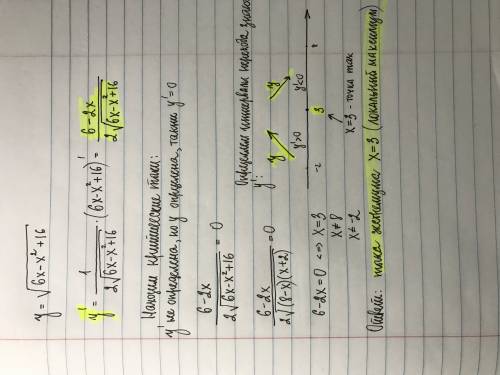 y = √(6x-x²+16)
y' = 1/(2√(6x-x²+16)) · (6x-x²+16)' = (6-2x)/(2√(6x-x²+16))
Находим критические точки:
y' не определена, но y определена, также y'=0
(6-2x)/(2√(6x-x²+16)) = 0
(6-2x)/(2√((8-x)(x+2))) = 0
6-2x=0 <=> x=3
x≠8
x≠-2
Определяем интервалы перехода знака
y':
y y
y'>0 y'<0
-2 3
x=3 - точка max
Ответ: точка экстремума x=3 (локальный максимум)